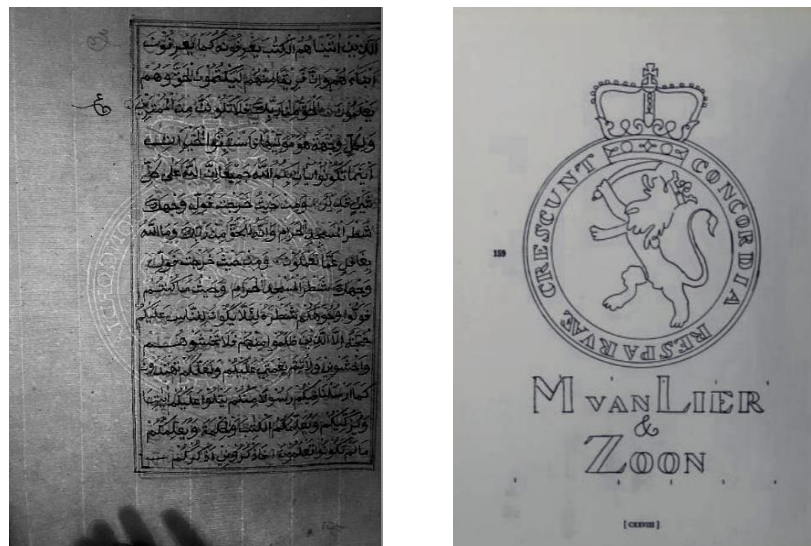 الذين اتيناهم الكتب يعرفونه كما يعرفون
ابناءهم وان فريقا منهم ليكتمون الحق وهم
يعلمون الحق من ربك فلا تكونن من الممترين
ولكل وجهة هو موليها فاستبقوا الخيرات
أينما تكونوا يأت بكم الله جميعا ان الله على كل
شيء قدير ومن حيث خرجت فول وجهك
شطر المسجد الحرام وانه للحق من ربك وما الله
بغافل عما تعملون ومن حيث خرجت فول
وجهك شطر المسجد الحرام وحيث ما كنتم
فولوا وجوهكم شطره لئلا يكون للناس عليكم
حجة الا الذين ظلموا منهم فلا تخشوهم
واخشوني ولاتم نعمتي عليكم ولعلكم تهتدون
كما ارسلنا فيكم رسولا منكم يتلوا عليكم ايتنا
ويزكيكم ويعلمكم الكتب والحكمة ويعلمكم
ما لم تكونوا تعلمون فاذكروني اذكركم
CONCORDIA RESPARVAE CRESCUNT
159
M VAN LIER
&
ZOON
[CXXVIII]